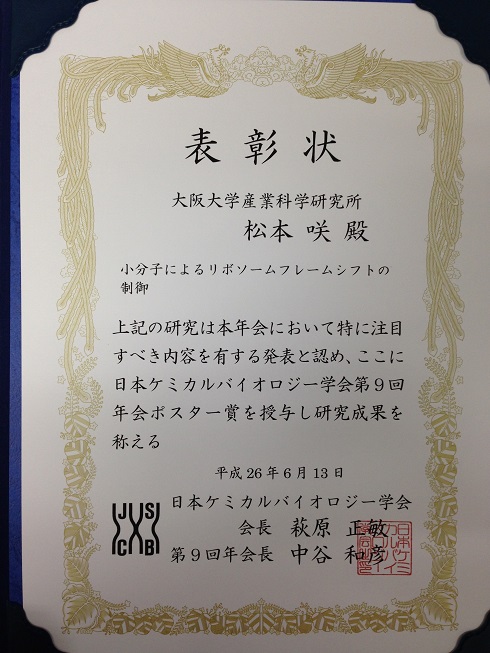 表彰状
大阪大学産業科学研究所
松本 咲 殿
小分子によるリボソームフレームシフトの
制御
上記の研究は本年会において特に注目
すべき内容を有する発表と認め、ここに
日本ケミカルバイオロジー学会第9回
年会ポスター賞を授与し研究成果を
称える
平成26年6月13日
JSCB
日本ケミカルバイオロジー学会
会長 萩原 正敏
第9回年会長 中谷 和彦